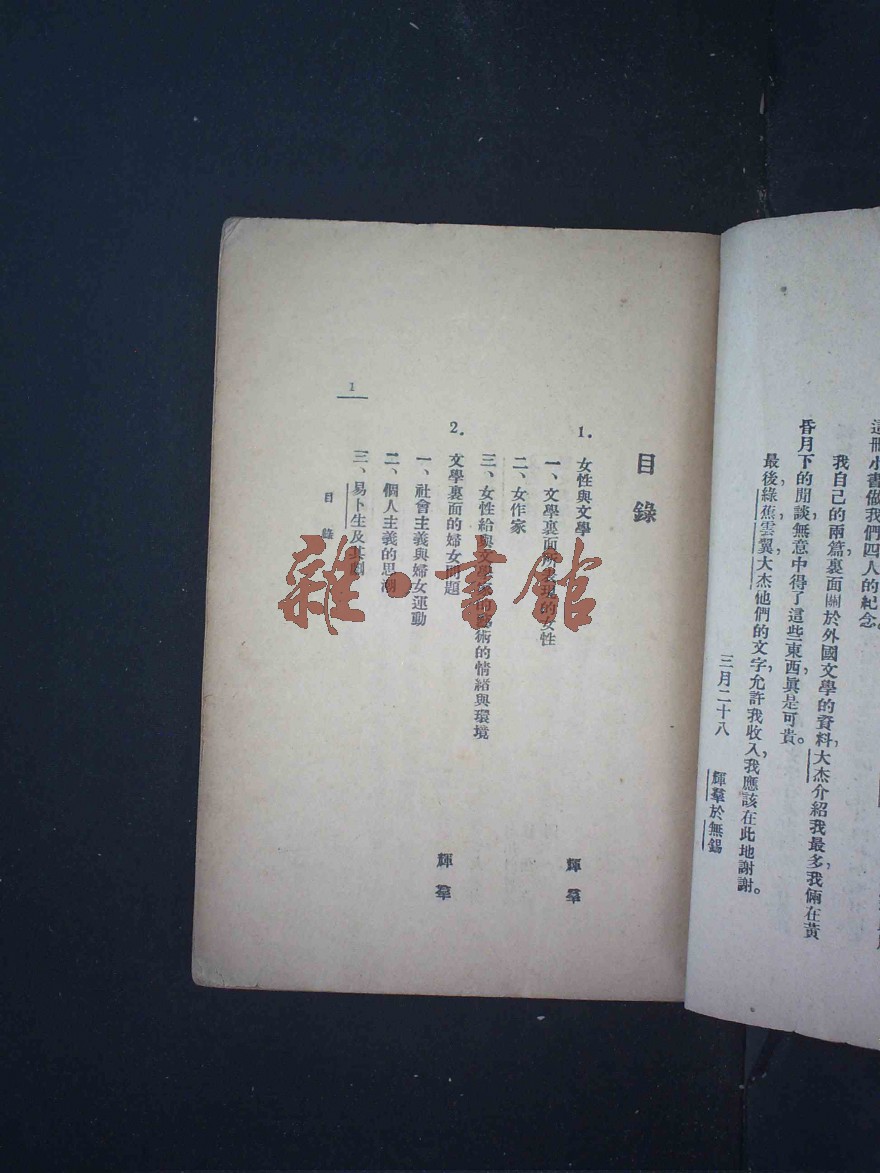 這冊小書做我們四人的紀念。
我自己的兩篇，裏面關於外國文學的資料，大杰介紹我最多，我倆在黃
昏月下的閒談，無意中得了這些東西，眞是可貴。
最後，綠蕉，雲翼，大杰他們的文字，允許我收入，我應該在此地謝謝。
三月二十八 輝羣於無錫
目錄
1. 女性與文學 輝羣
一、文學裏面所表現的女性
二、女作家
三、女性給與文學家的藝術的情緒與環境
2. 文學裏面的婦女問題 輝羣
一、社會主義與婦女運動
二、個人主義的思潮
三、易卜生及其劇
目錄
1
雜·書館